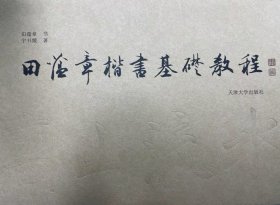 田蕴章 书
田蕴章楷書基礎教程
天津大学出版社